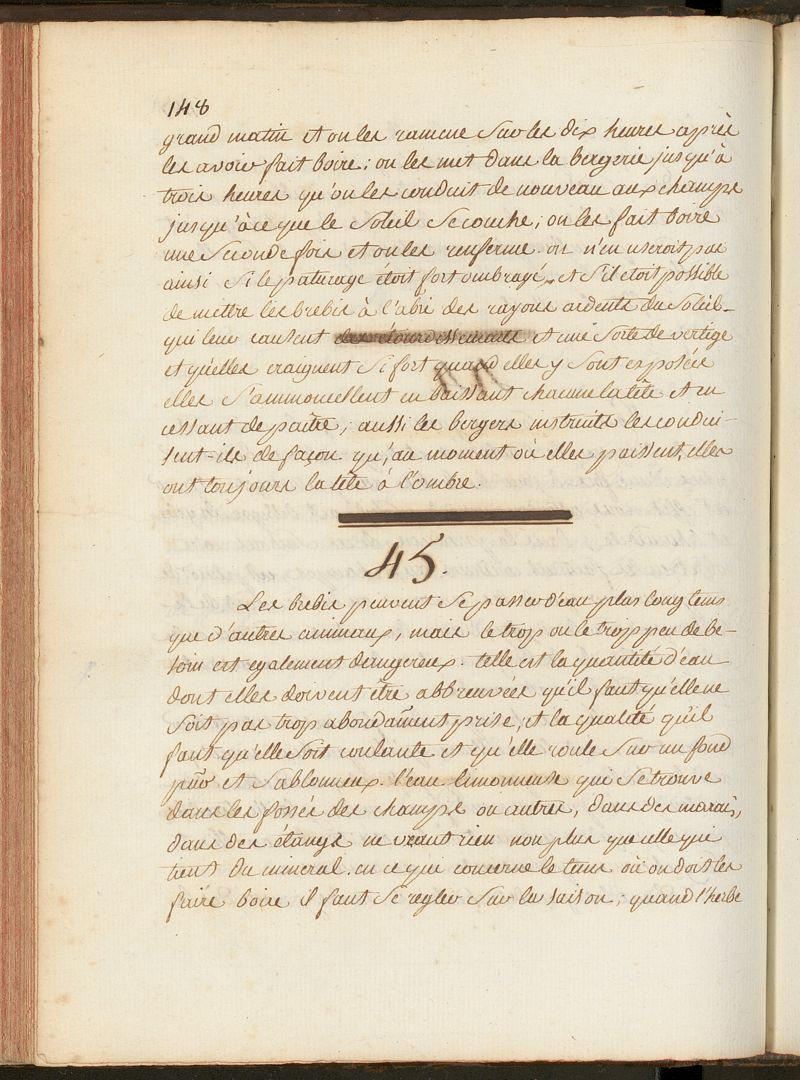 148
grand matin et on les ramene sur les dix heures après
les avoir fait boire; on les met dans la bergerie jusqu'à
trois heures qu'on les conduit de nouveau aux champs
jusqu'à ce que le soleil se couche; on les fait boire
une seconde fois et on les renferme. on n'en useroit pas
ainsi si le paturage étoit fort ombragé, et s'il étoit possible
de mettre les brebis à l'abri des rayons ardents du soleil
qui leur causent des étourdissements et une sorte de vertige
et qu'elles craignent si fort quand elles y sont exposées
elles s'ammoncellent en baissant chacune la tête et en
cessant de paître; aussi les bergers instruits les condui-
sent-ils de façon qu'au moment où elles paissent, elles
ont toujours la tête à l'ombre.
45.
Les brebis peuvent se passer d'eau plus longtems
que d'autres animaux, mais le trop ou le trop peu de be-
soin est egalement dangereux. telle est la quantité d'eau
dont elles doivent être abbreuvées qu'il faut qu'elle ne
soit pas trop abondam̃ent prise, et la qualité qu'il
faut qu'elle soit coulante et qu'elle roule sur un fond
pur et sablonneux. l'eau limonneuse qui se trouve
dans les fossés des champs ou autres, dans des marais,
dans des étangs ne vaut rien non plus que celle qui
tient du mineral. en ce qui concerne le tems où on doit les
faire boire il faut se regler sur la saison; quand l'herbe